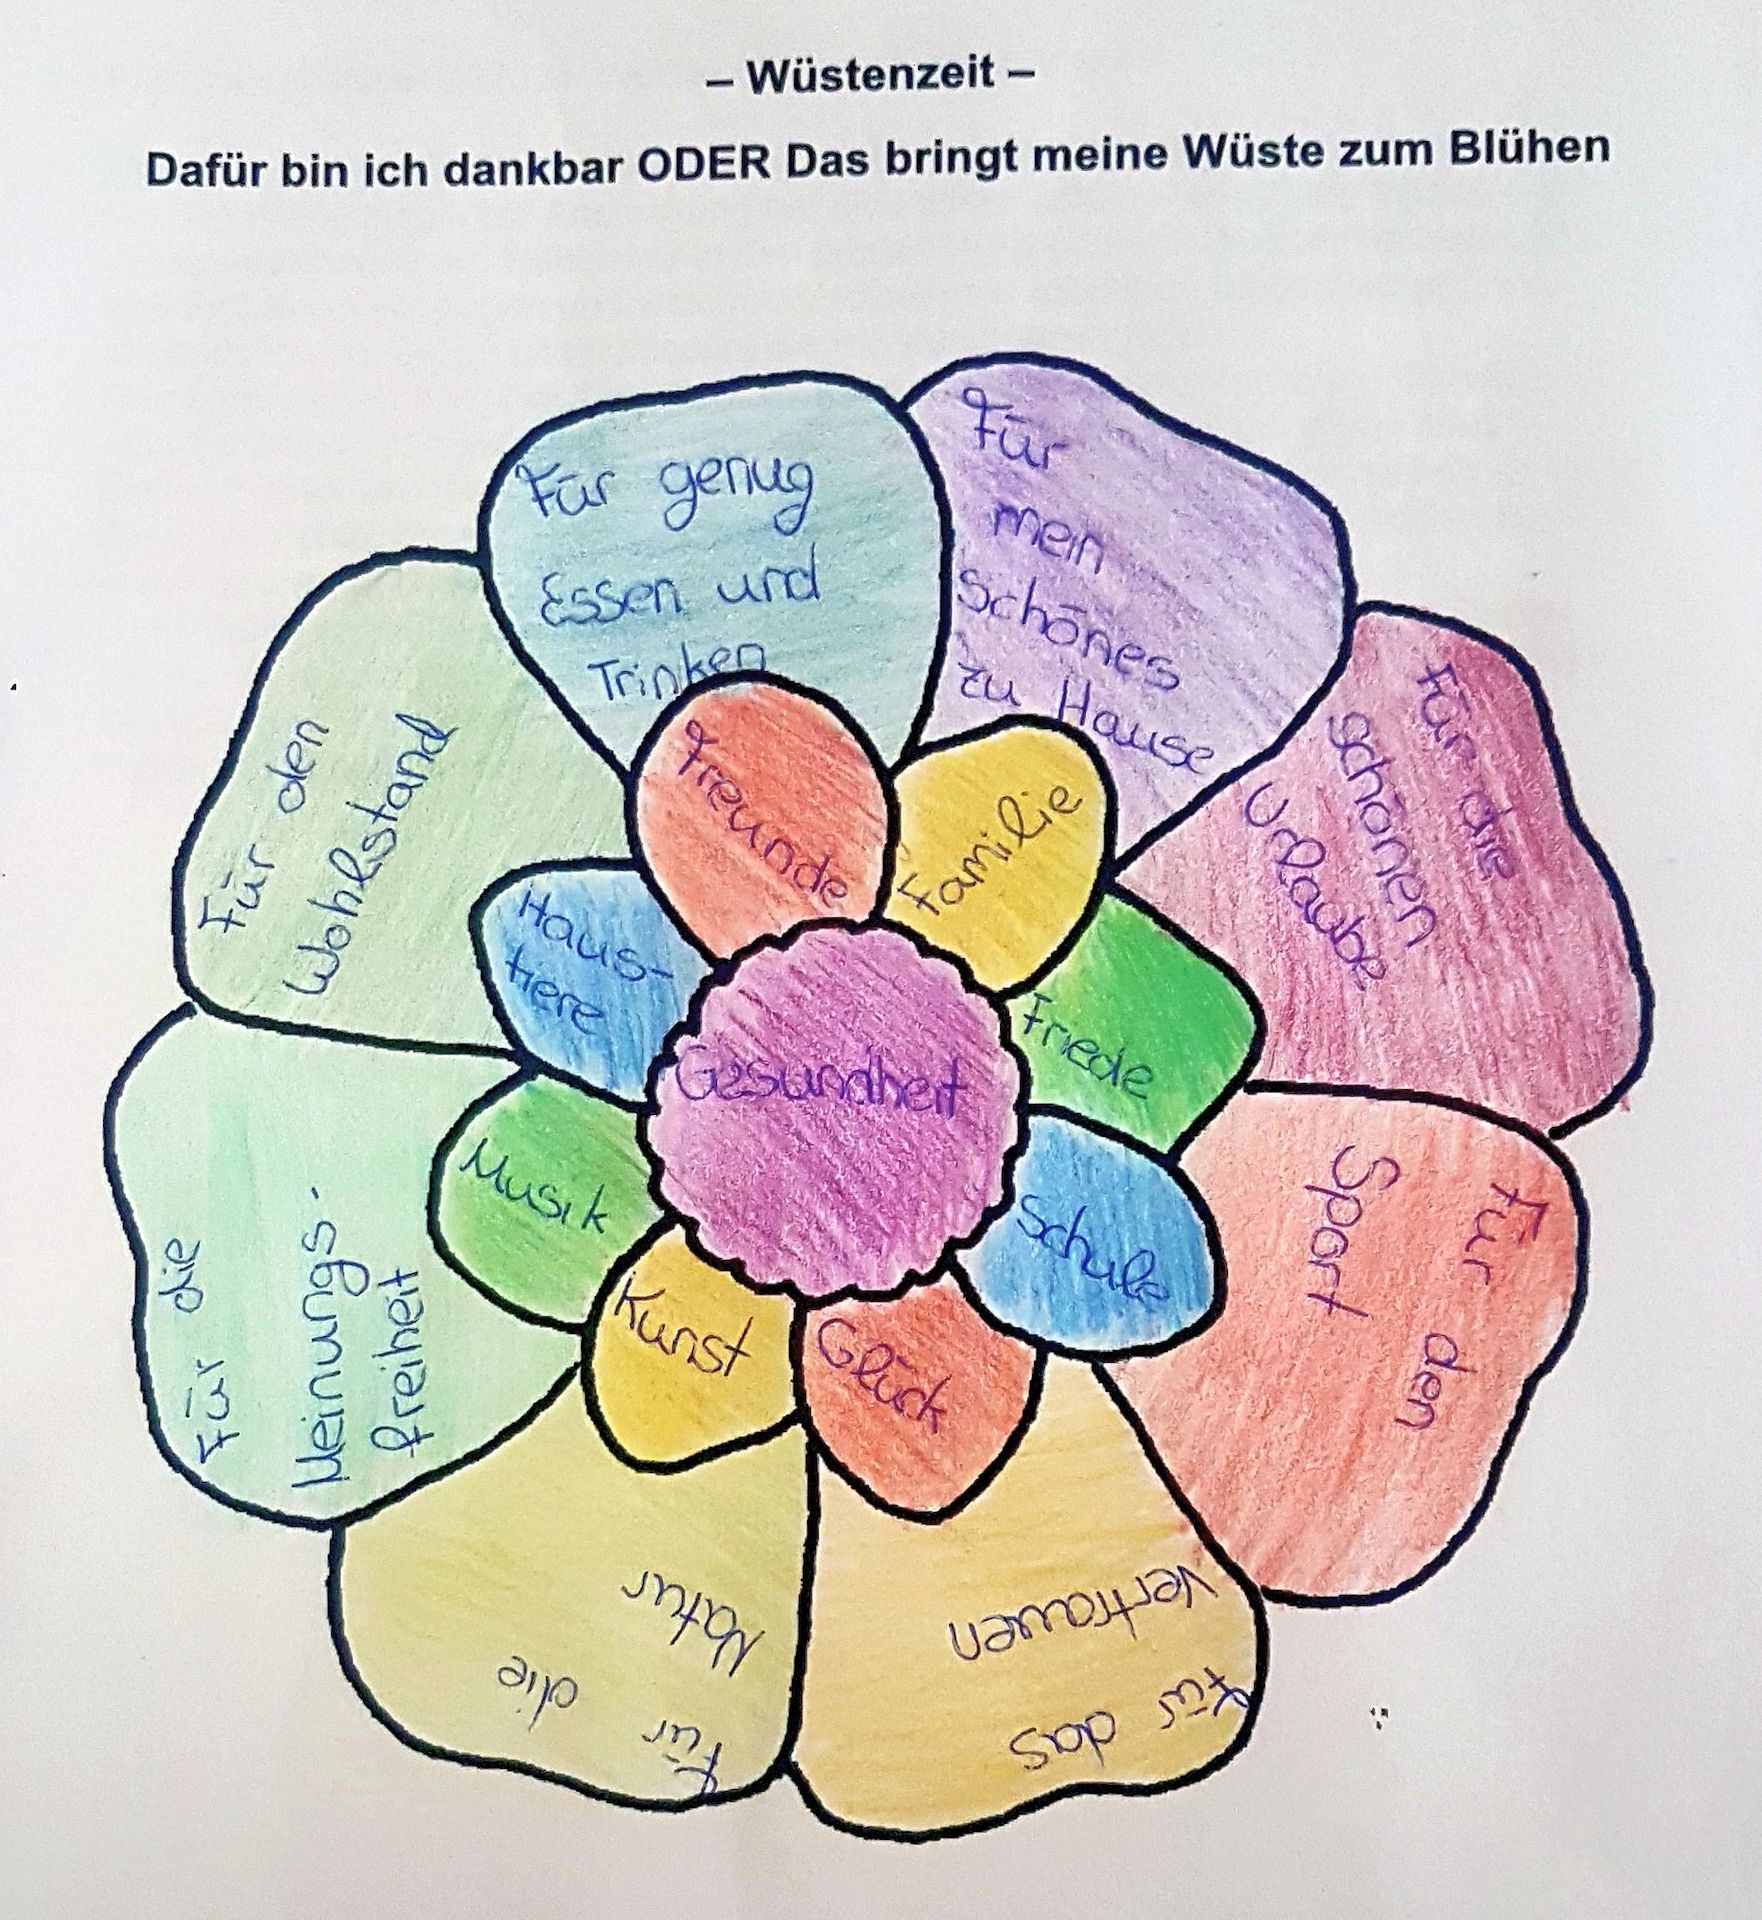 – Wüstenzeit –
Dafür bin ich dankbar ODER Das bringt meine Wüste zum Blühen
Für genug
Essen und
Trinken
Für
mein
schönes
zu Hause
Für die
schönen
Urlaube
Für den
Sport
Für das
Vertrauen
Für die
Natur
Für die
Meinungs-
freiheit
Für den
Wohlstand
Freunde
Familie
Friede
Schule
Glück
Kunst
Musik
Haus-
tiere
Gesundheit